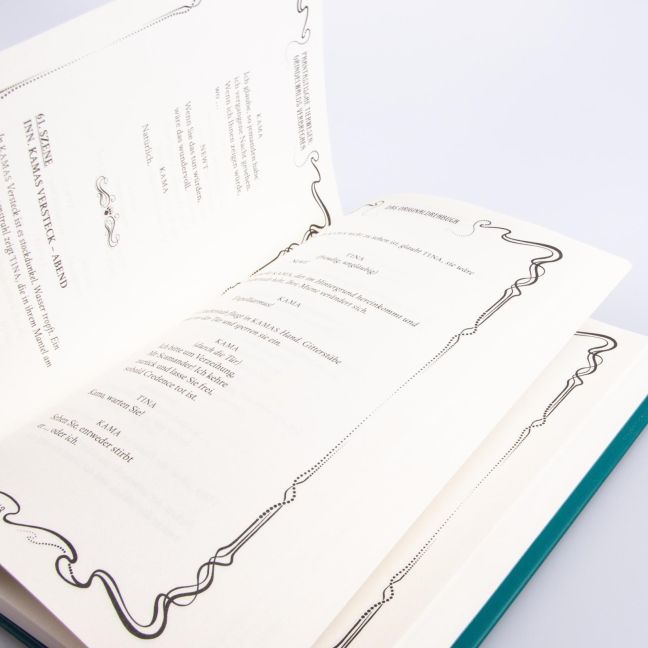 PHANTASTISCHE TIERWESEN:
GRINDELWALDS VERBRECHEN
KAMA
Ich glaube, so jemanden habe
ich vergangene Nacht gesehen.
Wenn ich Ihnen zeigen würde,
wo ...
NEWT
Wenn Sie das tun würden,
wäre das wundervoll.
KAMA
Natürlich.
61. SZENE
INN. KAMAS VERSTECK – ABEND
In KAMAS Versteck ist es stockdunkel. Wasser tropft. Ein
zeigt TINA, die in ihrem Mantel am
DAS ORIGINALDREHBUCH
zu sehen ist, glaubt TINA, sie wäre
TINA
(freudig, ungläubig)
Newt!
KAMA, der im Hintergrund hereinkommt und
Ihre Miene verändert sich.
KAMA
Expelliarmus!
fliegt in KAMAS Hand. Gitterstäbe
die Tür und sperren sie ein.
KAMA
(durch die Tür)
Ich bitte um Verzeihung,
Mr Scamander! Ich kehre
zurück und lasse Sie frei,
sobald Credence tot ist.
TINA
Kama, warten Sie!
KAMA
Sehen Sie, entweder stirbt
er ... oder ich.